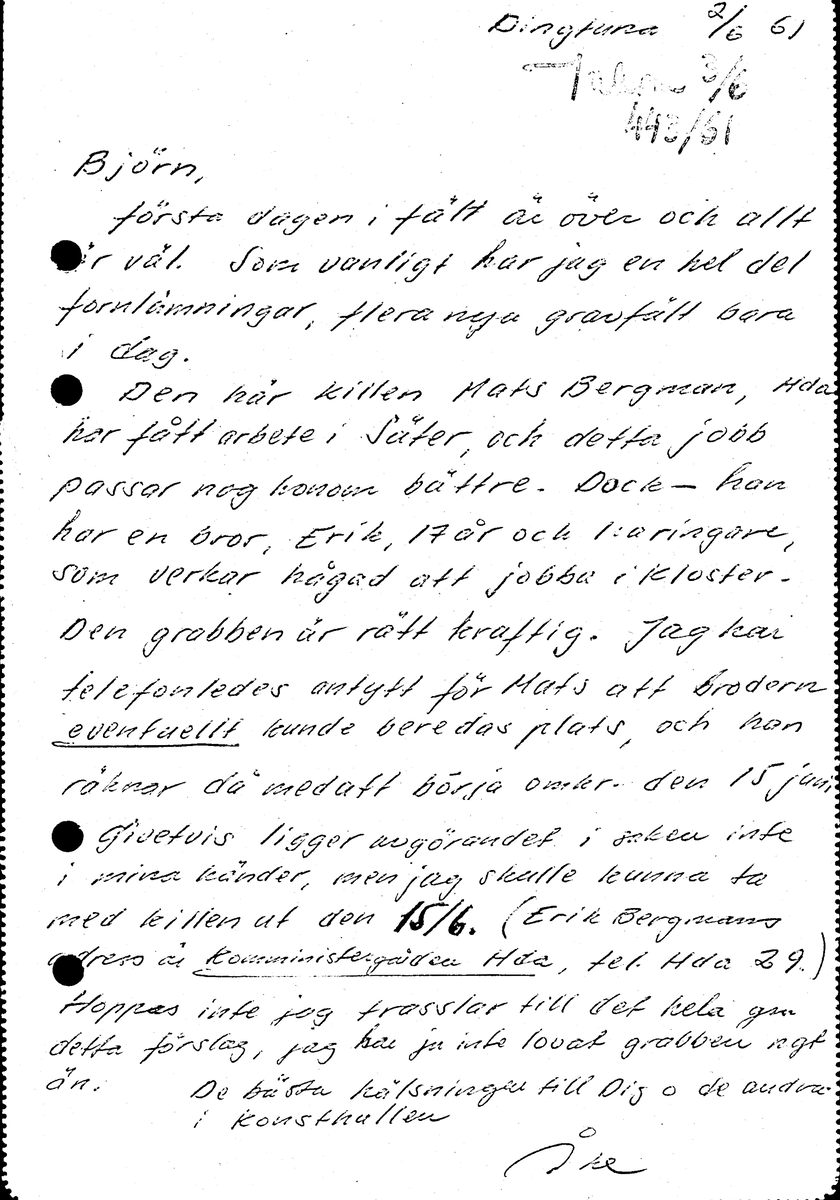 Dingtuna 2/6 61
3/6
443/61
Björn,
första dagen i fält är över och allt
är väl. Som vanligt har jag en hel del
fornlämningar, flera nya gravfält bara
i dag.
Den här killen Mats Bergman, Hda
har fått arbete i Säter, och detta jobb
passar nog honom bättre. Dock — han
har en bror, Erik, 17 år och
som verkar hågad att jobba i Kloster.
Den grabben är rätt kraftig. Jag har
telefonledes antytt för Mats att brodern
eventuellt kunde beredas plats, och han
räknar då med att börja omkr. den 15 juni
Givetvis ligger avgörandet i saken inte
i mina händer, men jag skulle kunna ta
med killen ut den 15/6. (Erik Bergmans
adress är Komministergården Hda, tel. Hda 29.)
Hoppas inte jag trasslar till det hela gm
detta förslag, jag har ju inte lovat grabben ngt
än.
De bästa hälsningen till Dig o de andra
i Konsthallen
Åke